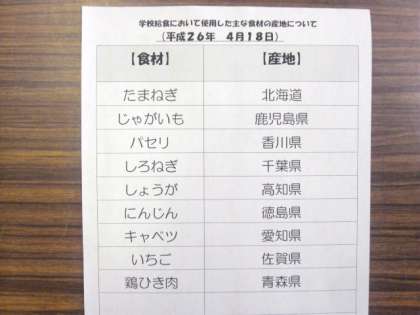 学校給食において使用した主な食材の産地について
(平成26年　4月18日)
【食材】　【産地】
たまねぎ　北海道
じゃがいも　鹿児島県
パセリ　香川県
しろねぎ　千葉県
しょうが　高知県
にんじん　徳島県
キャベツ　愛知県
いちご　佐賀県
鶏ひき肉　青森県